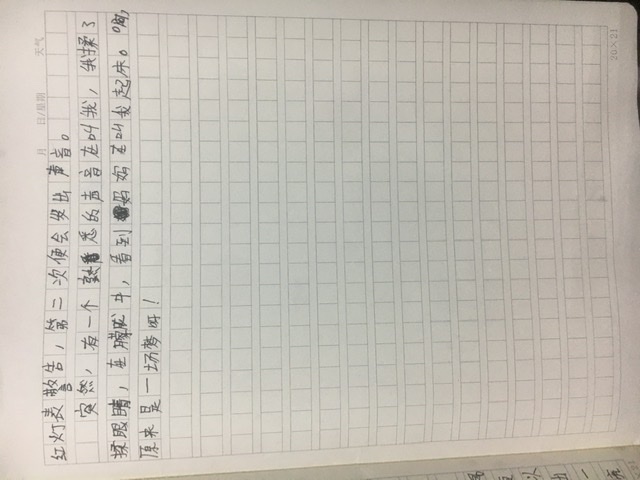 月 日/星期 天气
红灯表警告，第二次便会发出声音。
突然，有一个熟悉的声音在叫我，我揉了
揉眼睛，在朦胧中，看到妈妈在叫我起床。啊，
原来是一场梦呀！
20×21